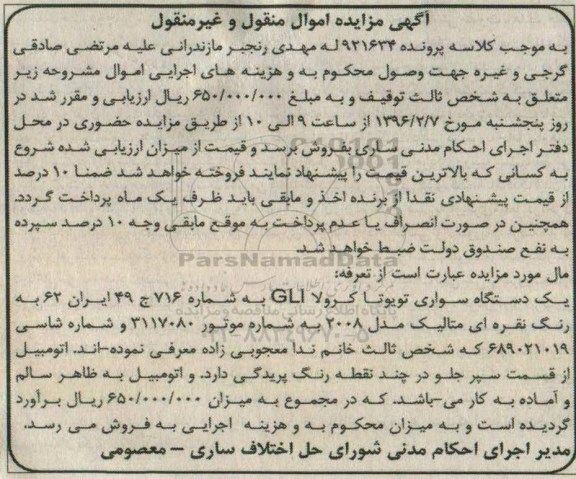 آگهی مزایده اموال منقول و غیرمنقول
به موجب کلاسه پرونده ۹۲۱۶۳۴ له مهدی رنجبر مازندرانی علیه مرتضی صادقی
گرجی و غیره جهت وصول محکوم به و هزینه های اجرایی اموال مشروحه زیر
متعلق به شخص ثالث توقیف و به مبلغ ۶۵۰/۰۰۰/۰۰۰ ریال ارزیابی و مقرر شد در
روز پنجشنبه مورخ ۱۳۹۶/۲/۷ از ساعت ۹ الی ۱۰ از طریق مزایده حضوری در محل
دفتر اجرای احکام مدنی ساری بفروش برسد و قیمت از میزان ارزیابی شده شروع
به کسانی که بالاترین قیمت را پیشنهاد نمایند فروخته خواهد شد ضمنا ۱۰ درصد
از قیمت پیشنهادی نقدا از برنده اخذ و مابقی باید ظرف یک ماه پرداخت گردد.
همچنین در صورت انصراف یا عدم پرداخت به موقع مابقی وجه ۱۰ درصد سپرده
به نفع صندوق دولت ضبط خواهد شد.
ParsNamadData
مال مورد مزایده عبارت است از تعرفه:
یک دستگاه سواری تویوتا کرولا GLI به شماره ۷۱۶ ج ۴۹ ایران ۶۲ به
پایگاه اطلاع رسانی مناقصه و مزایده
رنگ نقره ای متالیک مدل ۲۰۰۸ به شماره موتور ۳۱۱۷۰۸۰ و شماره شاسی
۶۸۹۰۲۱۰۱۹ که شخص ثالث خانم ندا معجوبی زاده معرفی نموده-اند. اتومبیل
از قسمت سپر جلو در چند نقطه رنگ پریدگی دارد. و اتومبیل به ظاهر سالم
و آماده به کار می-باشد. که در مجموع به میزان ۶۵۰/۰۰۰/۰۰۰ ریال برآورد
گردیده است و به میزان محکوم به و هزینه اجرایی به فروش می رسد.
مدیر اجرای احکام مدنی شورای حل اختلاف ساری – معصومی